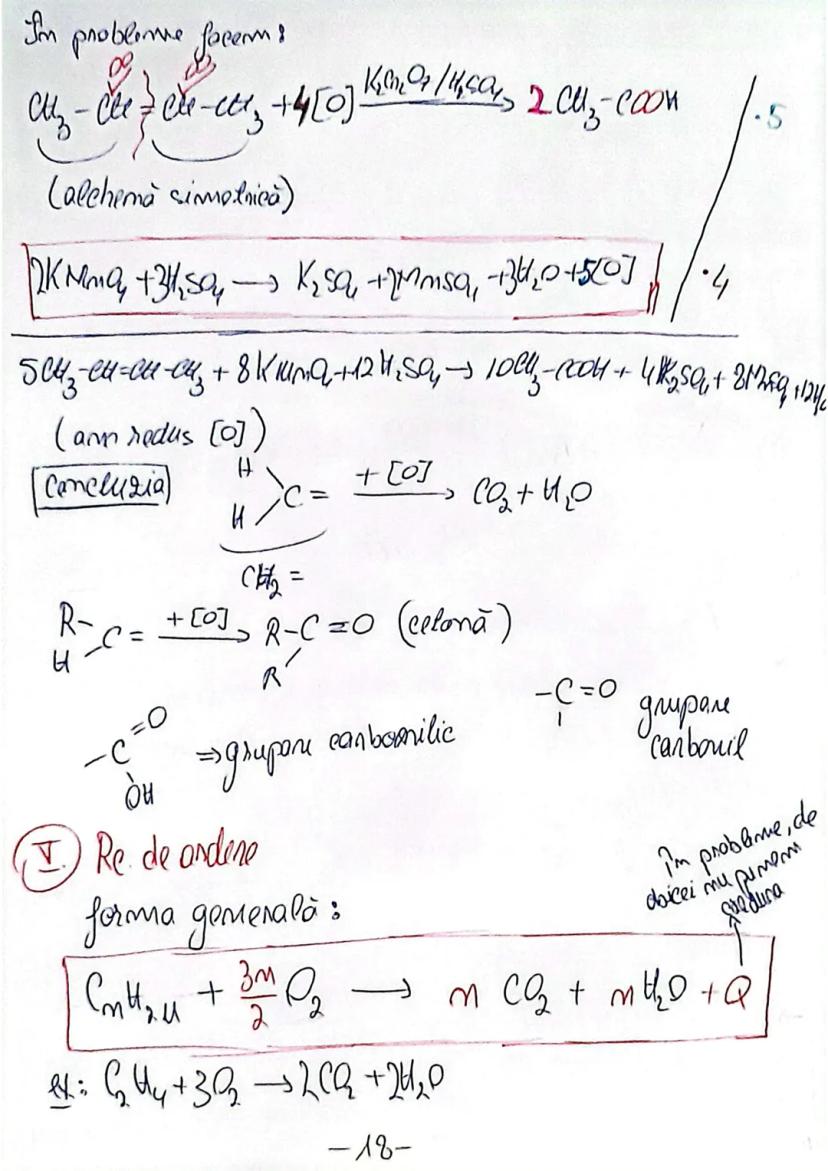 În probleme facem:
CH₃ – CH = CH – CH₃ + 4[O] K₂Cr₂O₇ / H₂SO₄ → 2 CH₃ – COOH
·5
(alchenă simetrică)
2KMnO₄ + 3H₂SO₄ → K₂SO₄ + 2MnSO₄ + 3H₂O + 5[O]
·4
5CH₃-CH=CH-CH₃ + 8KMnO₄ + 12H₂SO₄ → 10CH₃-COOH + 4K₂SO₄ + 8MnSO₄ + 12H₂
(am redus [O])
Concluzia
H
H C = + [O] → CO₂ + H₂O
CH₂ =
R-
H C = + [O] → R-C=O (cetonă)
R
-C=O
-C=O
OH
⇒ grupare carboxilic
grupare
carbonil
V. Re. de ardere
În probleme, de
obicei nu punem
forma generală:
CnH2n + 3n/2 O₂ → n CO₂ + n H₂O + Q
ex: C₂H₄ + 3O₂ → 2CO₂ + 2H₂O
-18-